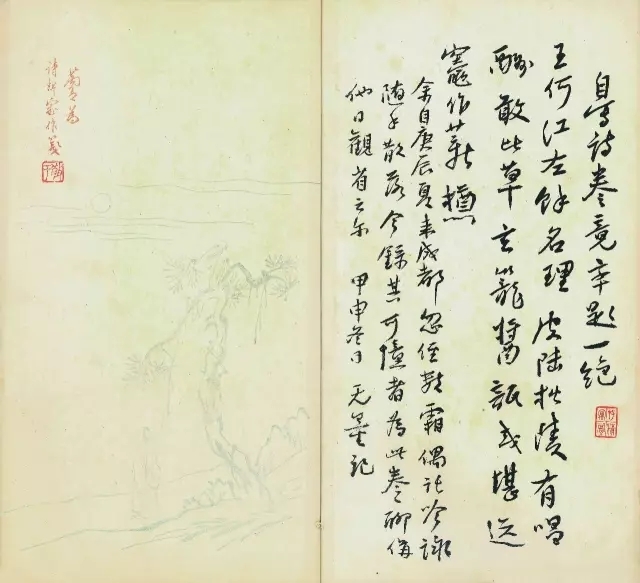 自寫詩卷竟率題一絕
王何江左餘名理皮陸松陵有唱
酬敢比草玄籠醬瓿或堪送
竈作薪槱
余自庚辰夏来成都忽經數霜偶託吟詠
隨手散落今錄其可憶者為此卷聊備
他日觀省云尔 甲申冬日 无量記
為
詩婢家作箋